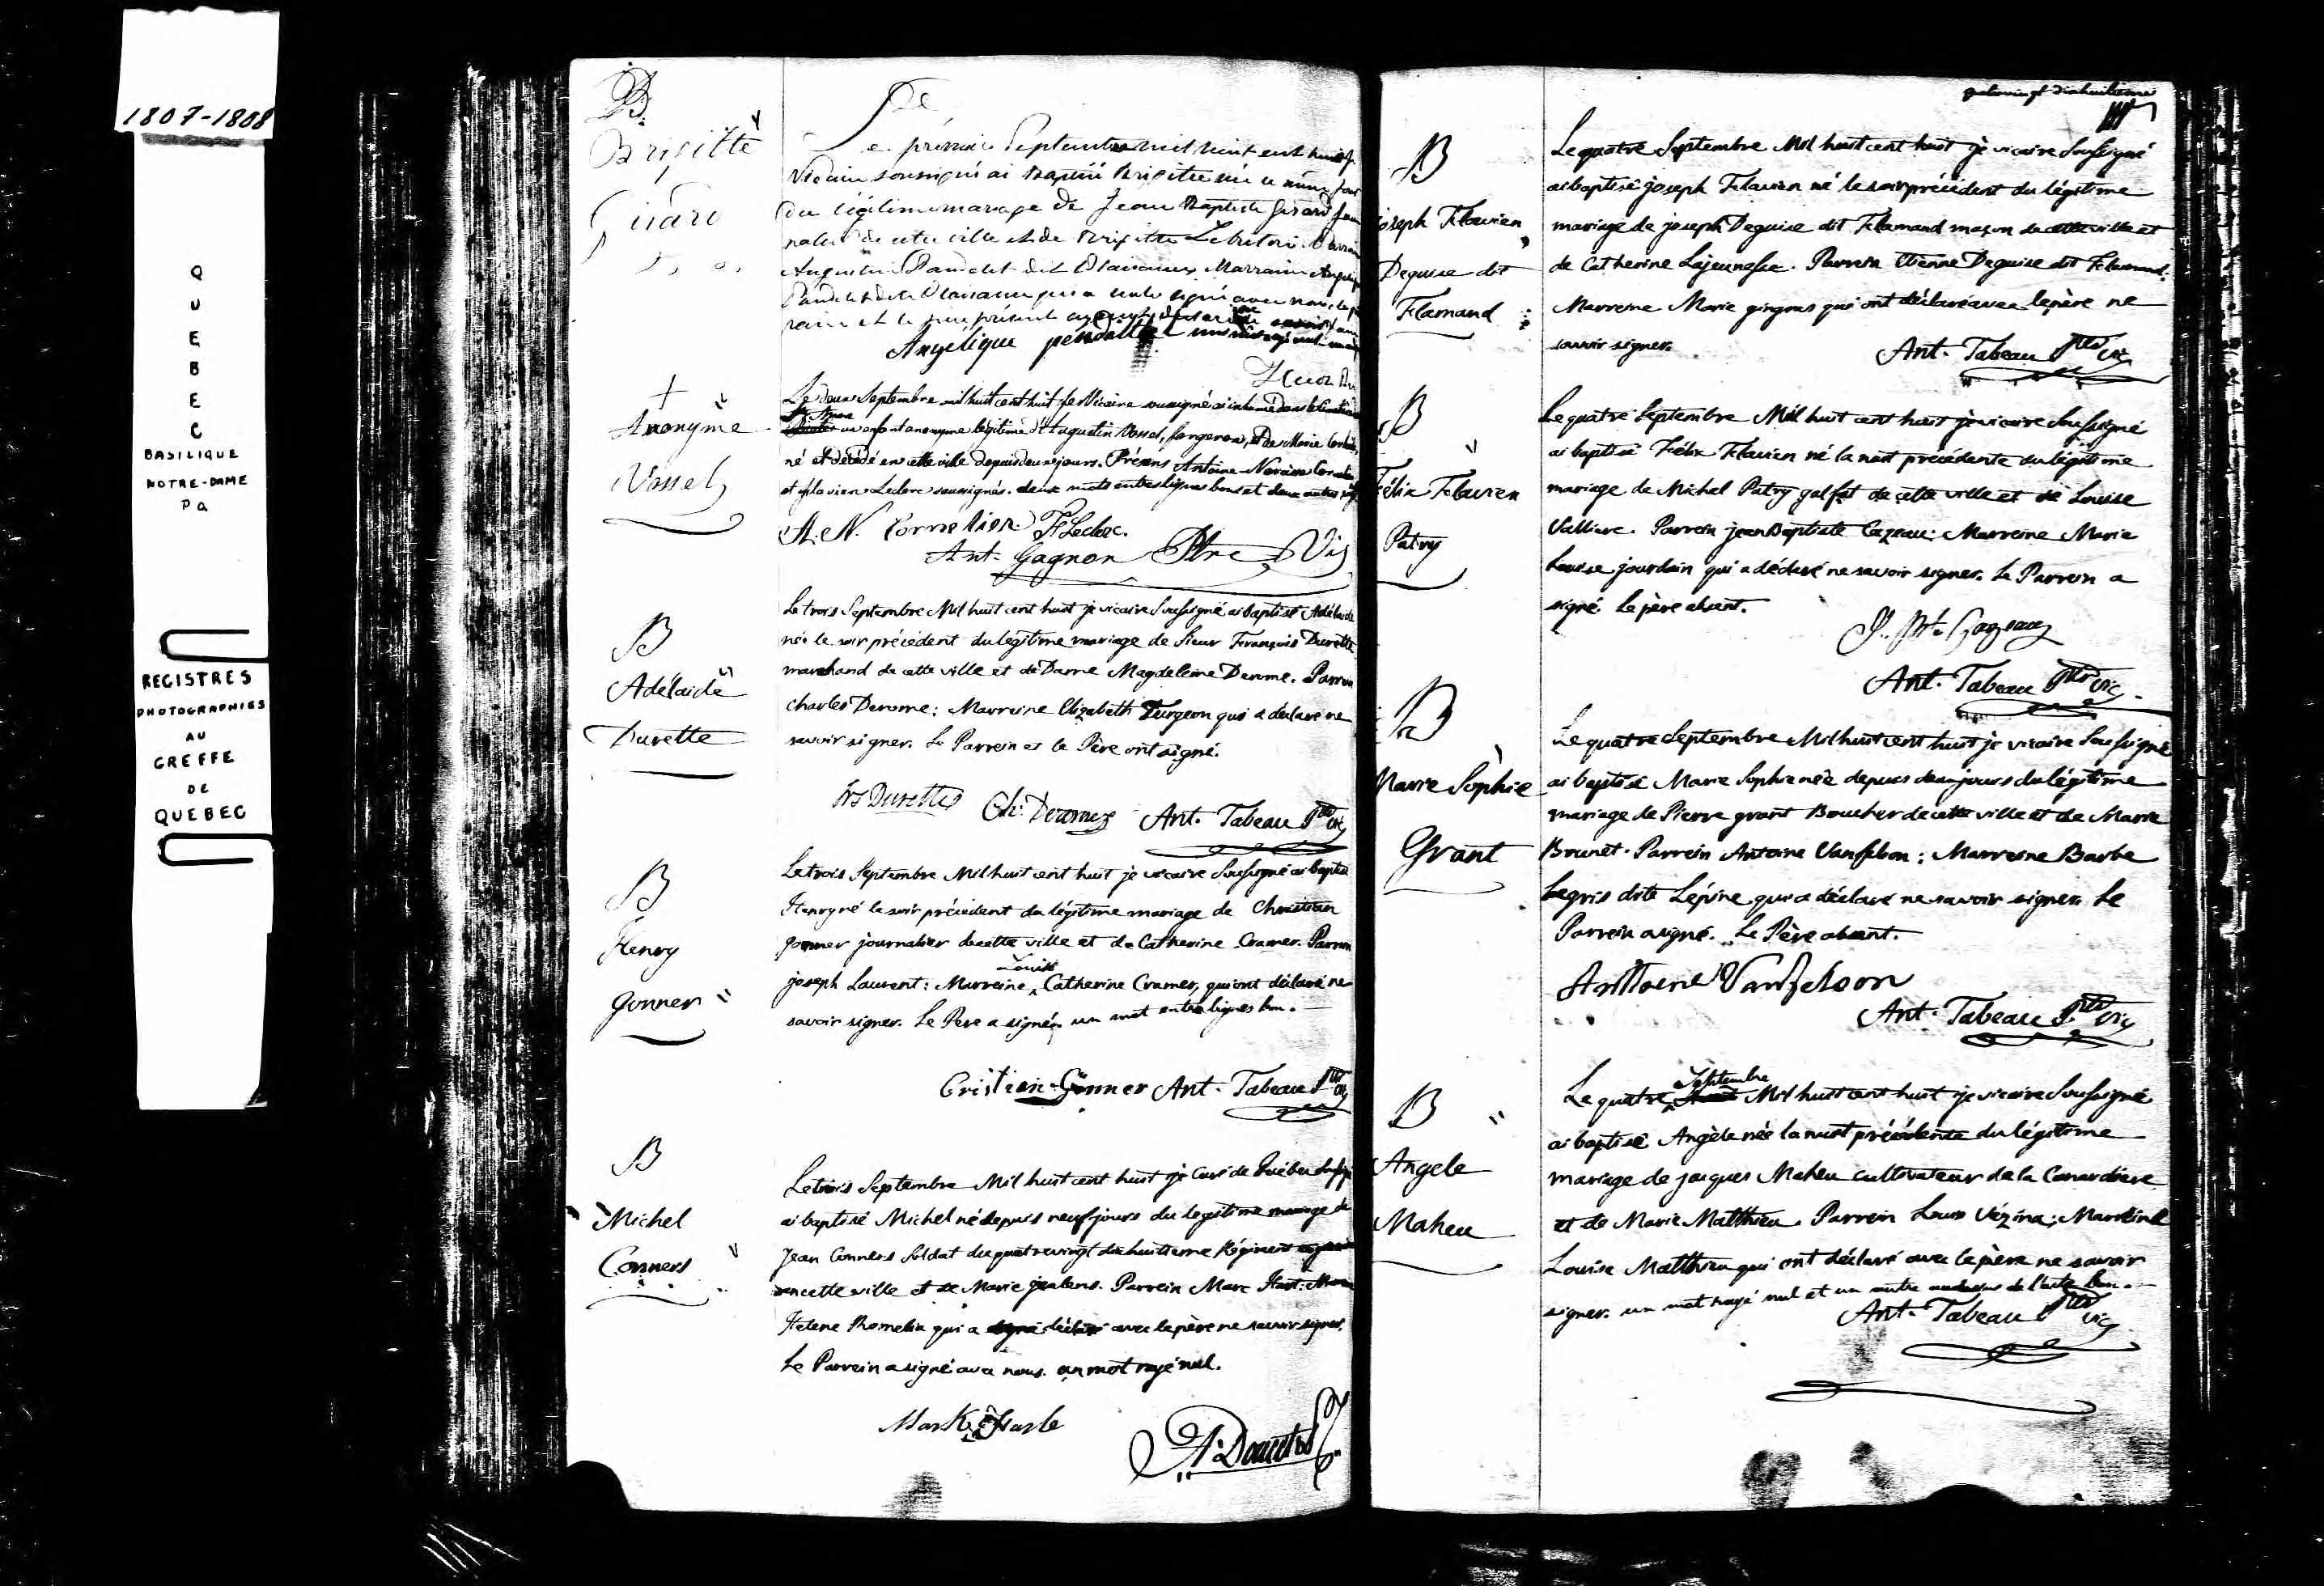 1807-1808
Q
U
E
B
E
C
BASILIQUE
NOTRE-DAME
PQ
REGISTRES
PHOTOGRAPHIES
AU
GREFFE
DE
QUEBEC
B
Brigitte
Girard
Le premier Septembre mil huit cent huit je
Vicaire soussigné ai baptisé Brigitte née le même jour
du légitime mariage de Jean Baptiste Girard jour
nalier de cette ville et de Brigitte
Augustin Paudelet dit Plaisance, Marraine Angelique
Paudelet dite Plaisance qui a seule signé avec nous, le par
rain et le père présent
Angelique
+
Anonyme
Vassel
Le deux Septembre mil huit cent huit je Vicaire soussigné ai inhumé dans le Cimetière
un enfant anonyme légitime d'Augustin Vassel, forgeron, et de Marie
né et décédé en cette ville depuis deux jours. Présens Antoine Narcisse
et Flavien Leclerc soussignés. deux mots entre lignes bons et deux autres
A. N. Cornelier F. Leclerc.
Ant. Gagnon Ptre Vic
B
Adélaide
Durette
Le trois Septembre Mil huit cent huit je vicaire Soussigné ai baptisé Adélaide
née le soir précédent du légitime mariage de Sieur François Durette
marchand de cette ville et de Dame Magdeleine Derome. Parrein
charles Derome: Marreine Elizabeth Turgeon qui a déclaré ne
savoir signer. Le Parrein et le Père ont signé.
Frs Durette Ch: Derome Ant. Tabeau Ptre vic
B
Henry
Gonner
Le trois Septembre Mil huit cent huit je vicaire Soussigné ai baptisé
Henry né le soir précédent du légitime mariage de Christian
gonner journalier de cette ville et de Catherine Cramer. Parrein
Louise
joseph Laurent: Marreine Catherine Cramer, qui ont déclaré ne
savoir signer. Le Pere a signé. un mot entre lignes bon.
Cristian Gonner Ant. Tabeau Ptre vic
B
Michel
Conners
Le trois Septembre Mil huit cent huit je Curé de Québec Soussigné
ai baptisé Michel né depuis neuf jours du legitime mariage de
Jean Conners Soldat du quatrevingt dix huitieme Régiment
en cette ville et de Marie Parrein Marc
Helene qui a déclaré avec le père ne savoir signer.
Le Parrein a signé avec nous. un mot rayé nul.
Mark
A: Doucet
quatrevingt dixhuitieme
B
joseph Flavien
Deguise dit
Flamand
Le quatre Septembre Mil huit cent huit je vicaire Soussigné
ai baptisé joseph Flavien né le soir précédent du légitime
mariage de joseph Deguise dit Flamand maçon de cette ville et
de Catherine Lajeunesse. Parrein Etienne Deguise dit Flamand.
Marreine Marie gingras qui ont déclaré avec le père ne
savoir signer.
Ant. Tabeau Ptre vic
B
Félix Flavien
Patry
Le quatre Septembre Mil huit cent huit je vicaire Soussigné
ai baptisé Félix Flavien né la nuit précédente du légitime
mariage de Michel Patry galfat de cette ville et de Louise
Valliere. Parrein jean Baptiste Cazeau: Marreine Marie
Louise jourdain qui a déclaré ne savoir signer. Le Parrein a
signé. Le père absent.
J. Bte Cazeau
Ant. Tabeau Ptre vic.
B
Marie Sophie
Grant
Le quatre Septembre Mil huit cent huit je vicaire Soussigné
ai baptisé Marie Sophie née depuis deux jours du légitime
mariage de Pierre grant Boucher de cette ville et de Marie
Brunet. Parrein Antoine Vanfelson: Marreine Barbe
Legris dite Lépine qui a déclaré ne savoir signer. Le
Parrein a signé. Le Père absent.
Anthoine Vanfelson
Ant. Tabeau Ptre vic
B
Angele
Maheu
Septembre
Le quatre Mil huit cent huit je vicaire Soussigné
ai baptisé Angèle née la nuit précédente du légitime
mariage de jacques Maheu cultivateur de la Canardiere
et de Marie Matthieu. Parrein Louis Vézina; Marreine
Louise Matthieu qui ont déclaré avec le père ne savoir
signer. un mot rayé nul et un autre au dessus de l'acte bon.
Ant. Tabeau Ptre vic